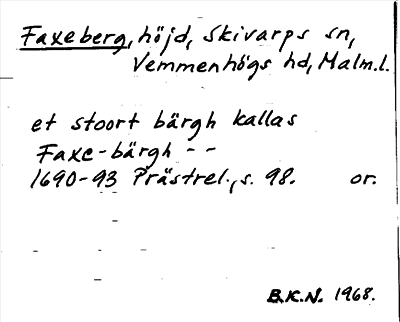 Faxeberg, höjd, Skivarps sn,
Vemmenhögs hd, Malm.l.
et stoort bärgh kallas
Faxe-bärgh - -
1690-93 Prästrel., s. 98. or.
B.K.N. 1968.